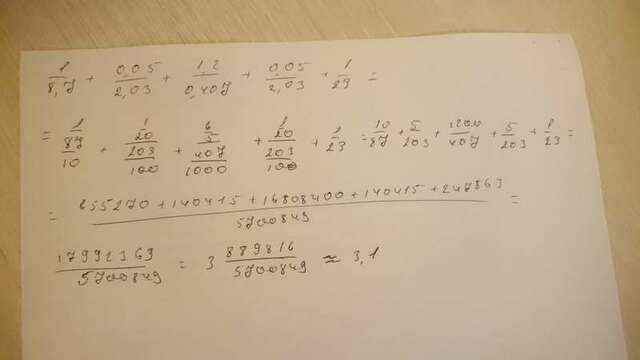 1/8,7 + 0,05/2,03 + 1,2/0,407 + 0,05/2,03 + 1/23 =
= 1/(87/10) + (1/20)/(203/100) + (6/5)/(407/1000) + (1/20)/(203/100) + 1/23 = 10/87 + 5/203 + 1200/407 + 5/203 + 1/23 =
= (655270 + 140415 + 16808400 + 140415 + 247863)/5700849 =
17992363/5700849 = 3 889816/5700849 ≈ 3,1